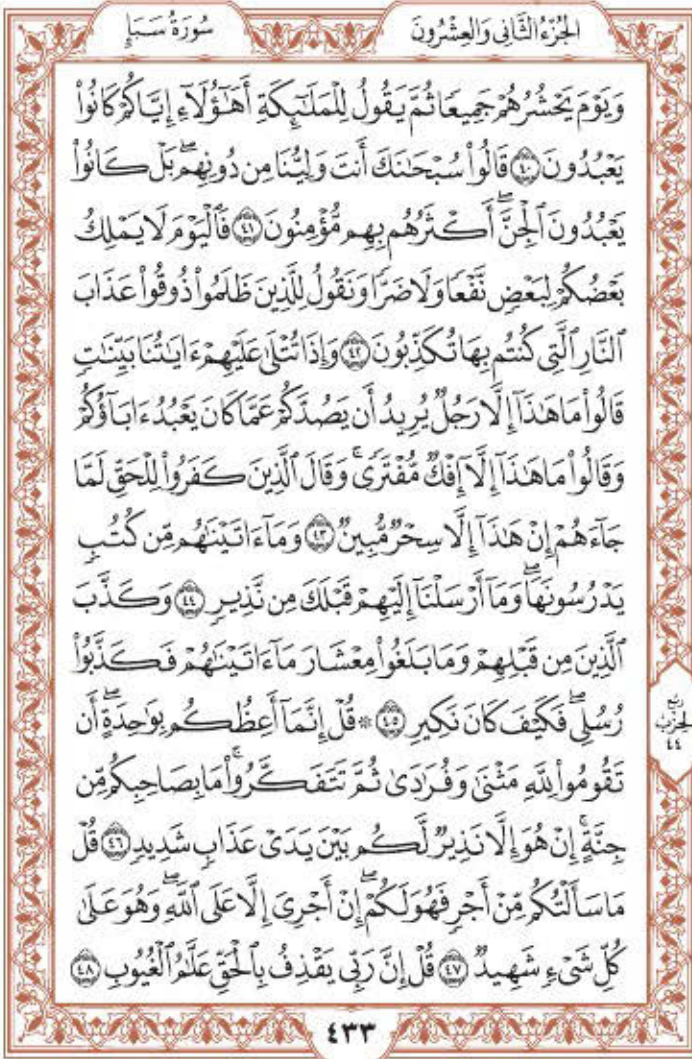 سُورَةُ سَبَإٍ
الجُزْءُ الثَّانِى وَالعِشْرُونَ
وَيَوْمَ يَحْشُرُهُمْ جَمِيعًا ثُمَّ يَقُولُ لِلْمَلَٰٓئِكَةِ أَهَٰٓؤُلَآءِ إِيَّاكُمْ كَانُوا۟
يَعْبُدُونَ ٤٠ قَالُوا۟ سُبْحَٰنَكَ أَنتَ وَلِيُّنَا مِن دُونِهِمۖ بَلْ كَانُوا۟
يَعْبُدُونَ ٱلْجِنَّۖ أَكْثَرُهُم بِهِم مُّؤْمِنُونَ ٤١ فَٱلْيَوْمَ لَا يَمْلِكُ
بَعْضُكُمْ لِبَعْضٍ نَّفْعًا وَلَا ضَرًّا وَنَقُولُ لِلَّذِينَ ظَلَمُوا۟ ذُوقُوا۟ عَذَابَ
ٱلنَّارِ ٱلَّتِى كُنتُم بِهَا تُكَذِّبُونَ ٤٢ وَإِذَا تُتْلَىٰ عَلَيْهِمْ ءَايَٰتُنَا بَيِّنَٰتٍ
قَالُوا۟ مَا هَٰذَآ إِلَّا رَجُلٌ يُرِيدُ أَن يَصُدَّكُمْ عَمَّا كَانَ يَعْبُدُ ءَابَآؤُكُمْ
وَقَالُوا۟ مَا هَٰذَآ إِلَّآ إِفْكٌ مُّفْتَرًىۚ وَقَالَ ٱلَّذِينَ كَفَرُوا۟ لِلْحَقِّ لَمَّا
جَآءَهُمْ إِنْ هَٰذَآ إِلَّا سِحْرٌ مُّبِينٌ ٤٣ وَمَآ ءَاتَيْنَٰهُم مِّن كُتُبٍ
يَدْرُسُونَهَاۖ وَمَآ أَرْسَلْنَآ إِلَيْهِمْ قَبْلَكَ مِن نَّذِيرٍ ٤٤ وَكَذَّبَ
ٱلَّذِينَ مِن قَبْلِهِمْ وَمَا بَلَغُوا۟ مِعْشَارَ مَآ ءَاتَيْنَٰهُمْ فَكَذَّبُوا۟
رُسُلِىۖ فَكَيْفَ كَانَ نَكِيرِ ٤٥ ۞ قُلْ إِنَّمَآ أَعِظُكُم بِوَٰحِدَةٍۖ أَن
تَقُومُوا۟ لِلَّهِ مَثْنَىٰ وَفُرَٰدَىٰ ثُمَّ تَتَفَكَّرُوا۟ۚ مَا بِصَاحِبِكُم مِّن
جِنَّةٍۚ إِنْ هُوَ إِلَّا نَذِيرٌ لَّكُم بَيْنَ يَدَىْ عَذَابٍ شَدِيدٍ ٤٦ قُلْ
مَا سَأَلْتُكُم مِّنْ أَجْرٍ فَهُوَ لَكُمْۖ إِنْ أَجْرِىَ إِلَّا عَلَى ٱللَّهِۖ وَهُوَ عَلَىٰ
كُلِّ شَىْءٍ شَهِيدٌ ٤٧ قُلْ إِنَّ رَبِّى يَقْذِفُ بِٱلْحَقِّ عَلَّٰمُ ٱلْغُيُوبِ ٤٨
رُبْع
الحِزْبِ
٤٤
٤٣٣